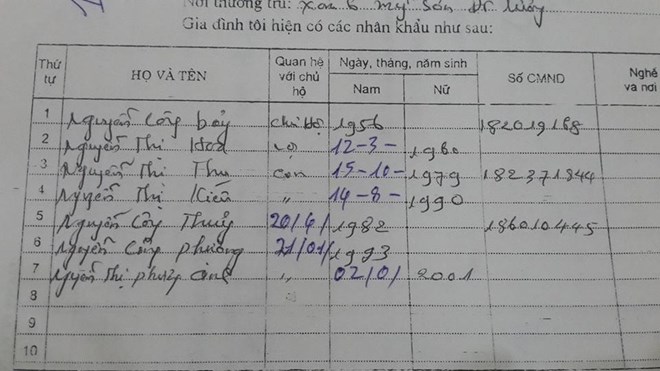 Nơi thường trú: Xóm 6 Mỹ Sơn Đô Lương
Gia đình tôi hiện có các nhân khẩu như sau:
Thứ tự HỌ VÀ TÊN Quan hệ với chủ hộ Ngày, tháng, năm sinh Nam Nữ Số CMND Nghề và nơi
1 Nguyễn Công bảy chủ hộ 1956 182019168
2 Nguyễn Thị Hoa vợ 12-3- 1960
3 Nguyễn Thị Thu con 15-10- 1979 182371844
4 Nguyễn Thị Kiều " 14-8- 1990
5 Nguyễn Công Thuỷ 20/4/ 1982 186010445
6 Nguyễn Công phương 21/01/ 1993
7 Nguyễn Thị phương " 02/01 2001
8 "
9
10